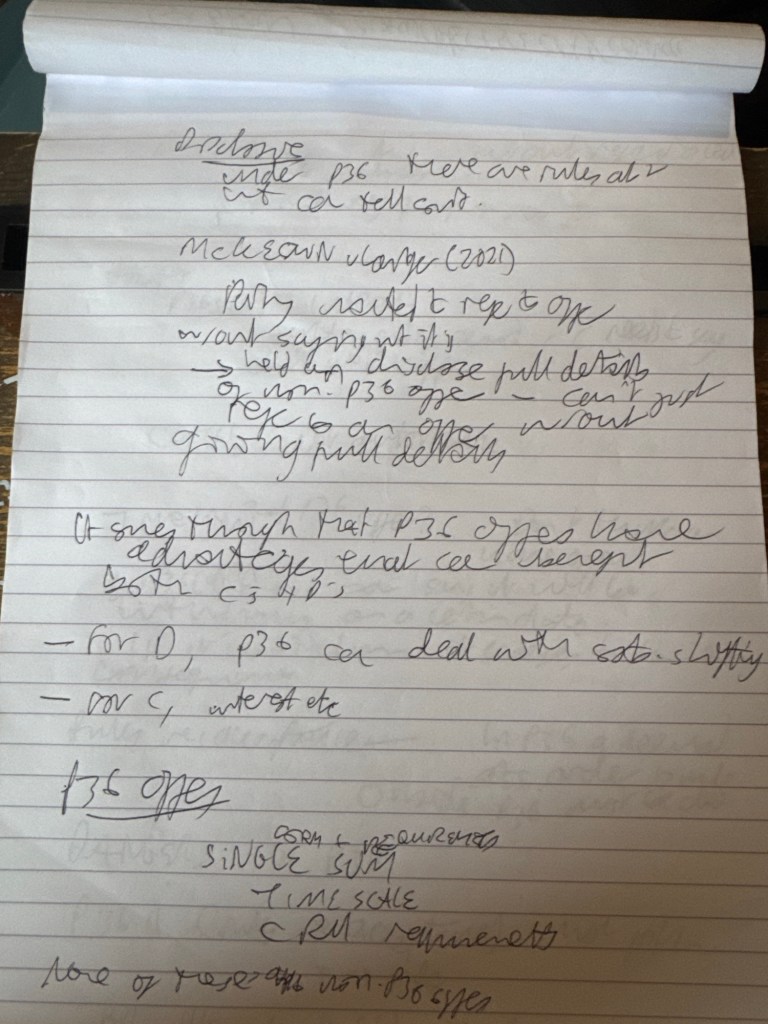 Disclosure
under P36 there are rules abt
wt can tell court.
McKEOWN v Langer (2021)
Party wanted to refer to offer
w/out saying wt it is
→ held can disclose full details
of non-P36 offer - can't just
refer to an offer w/out
giving full details
It says though that P36 offers have
advantages that can benefit
both C's & D's
- For D, P36 can deal with costs-shifting
- For C, interest etc
P36 offers
FORM + REQUIREMENTS
SINGLE SUM
TIMESCALE
CRU requirements
None of these apply non-P36 offers